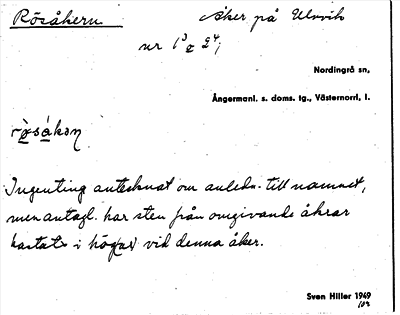 Rösåkern Åker på Ulvvik
nr 1³ & 2⁴;
Nordingrå sn,
Ångermanl. s. doms. tg., Västernorrl, l.
Ingenting antecknat om anledn. till namnet,
men antagl. har sten från omgivande åkrar
kastats i hög(ar) vid denna åker.
Sven Hiller 1949